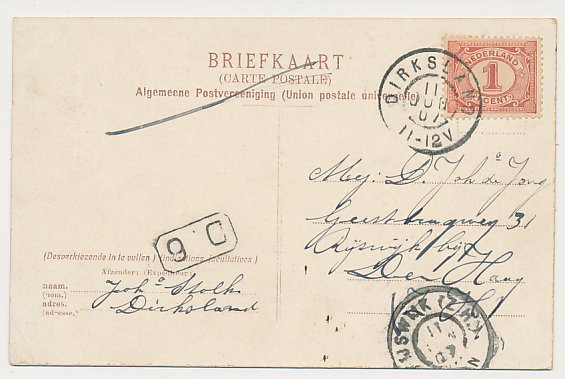 BRIEFKAART
(CARTE POSTALE)
Algemeene Postvereeniging (Union postale universelle)
NEDERLAND
1
CENT
DIRKSLAND
11
JUN
07
11-12V
Mej: D. Joh de Jong
Geestbrugweg 31
Rijswijk bij
Den Haag
D. 6
(Desverkiezende in te vullen) (Indications facultatives)
Afzender: (Expediteur)
naam. Joh^a Stolk
(nom.)
adres. Dirksland
(adresse.)
RIJSWIJK (Z.H.)
11